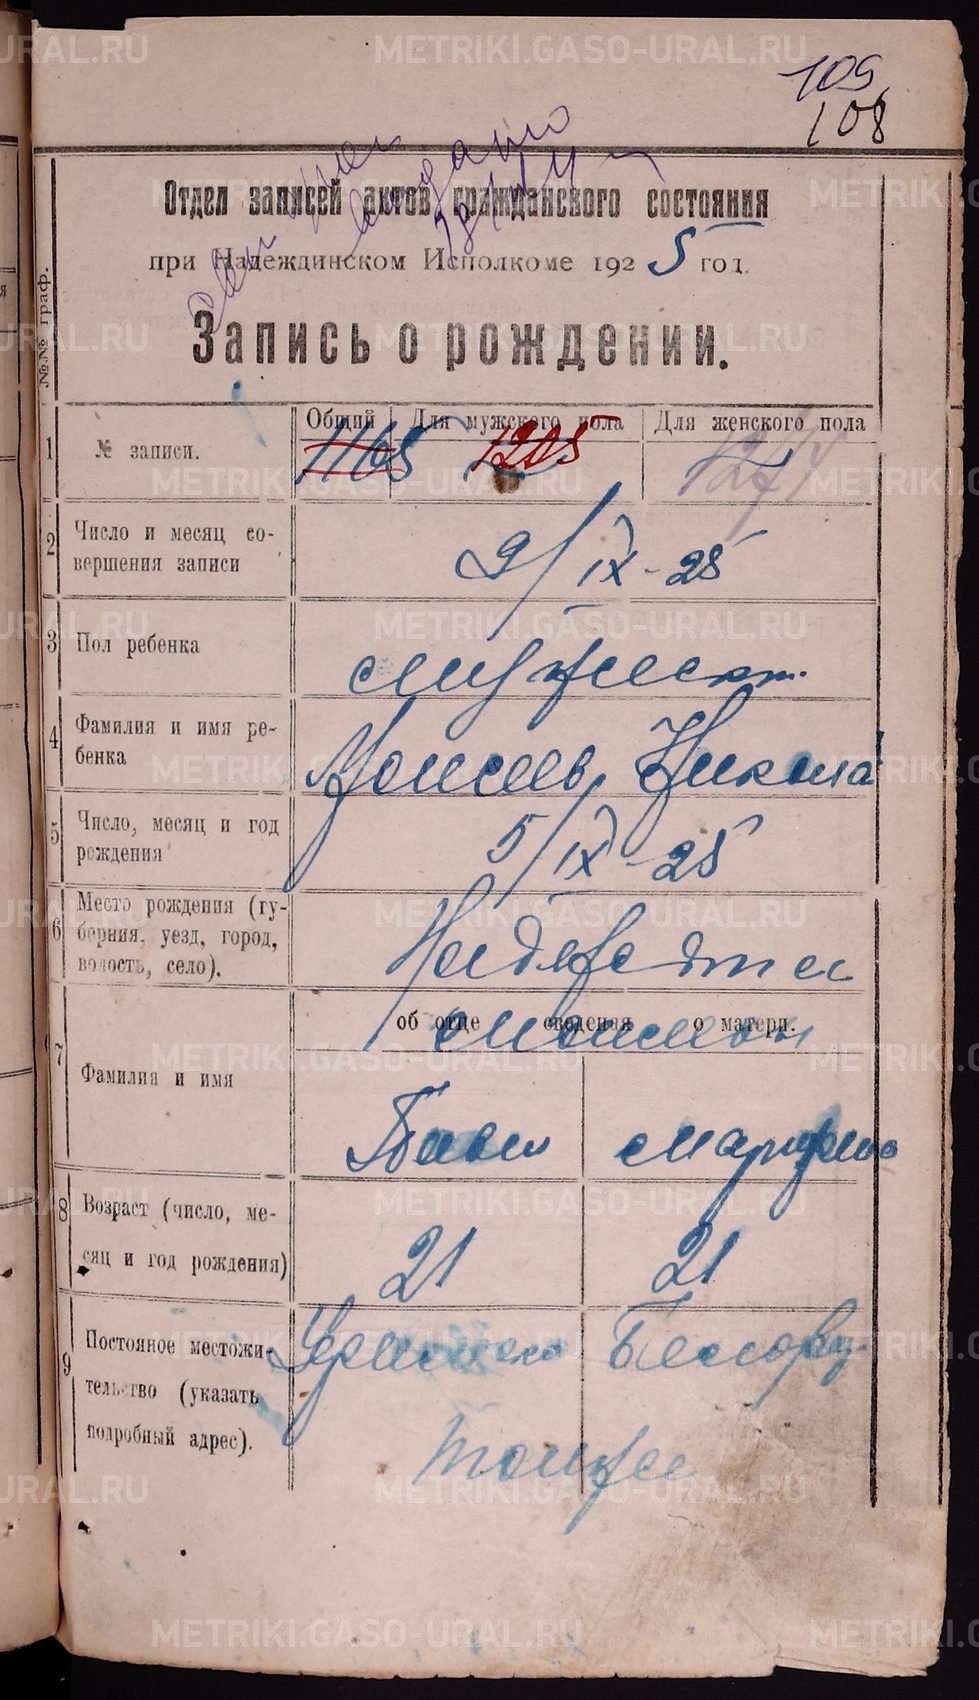 METRIKI.GASO-URAL.RU
109
108
выдано
Отдел записей актов гражданского состояния
при Надеждинском Исполкоме 1925 год.
Запись о рождении.
№№ граф.
Общий Для мужского пола Для женского пола
1 № записи. 1165 1205
2 Число и месяц со-
вершения записи
9/IX-25
3 Пол ребенка
мужеск.
4 Фамилия и имя ре-
бенка
Моисеев, Никола
5 Число, месяц и год
рождения
5/IX-25
6 Место рождения (гу-
берния, уезд, город,
волость, село).
Надежд
об отце сведения о матери.
7 Фамилия и имя
Павел Марфа
8 Возраст (число, ме-
сяц и год рождения)
21 21
9 Постояное местожи-
тельство (указать
подробный адрес).
тоиже